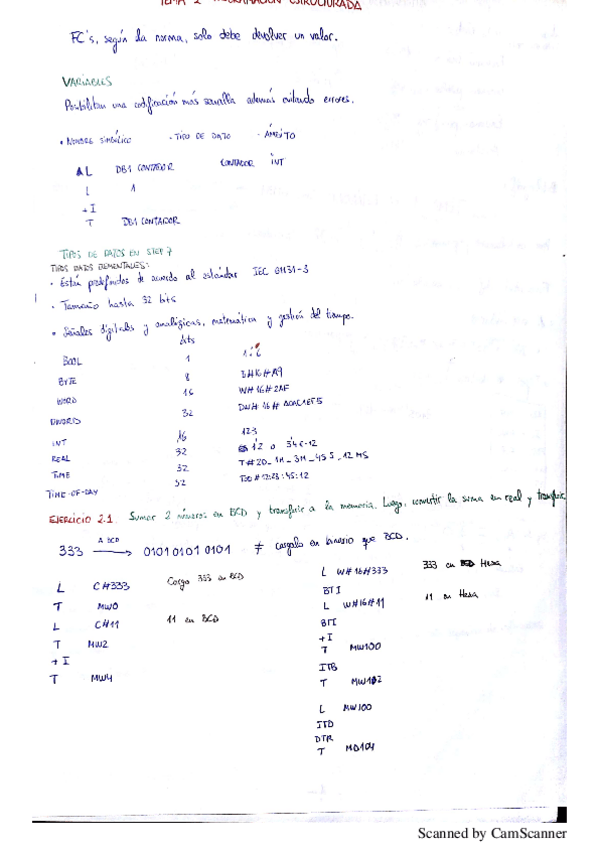 TEMA 2 PROGRAMACIÓN ESTRUCTURADA
FC's, según la norma, solo debe devolver un valor.
VARIABLES
Posibilitan una codificación más sencilla además evitando errores.
• NOMBRE SIMBÓLICO - TIPO DE DATO - ÁMBITO
AL DB1 CONTADOR CONTADOR INT
L 1
+I
T DB1 CONTADOR
TIPOS DE DATOS EN STEP 7
TIPOS DATOS ELEMENTALES:
• Están predefinidos de acuerdo al estándar IEC 61131-3
• Tamaño hasta 32 bits
• Señales digitales y analógicas, matemática y gestión del tiempo.
bits
BOOL 1
BYTE 8 B#16#A9
WORD 16 W#16#2AF
DWORD 32 DW#16#
INT 16 123
REAL 32 1'2 o 34E-12
TIME 32 T#2D_1H_3M_45S_12MS
TIME-OF-DAY 32 TOD#12:23:45:12
EJERCICIO 2.1. Sumar 2 números en BCD y transferir a la memoria. Luego, convertir la suma en real y transferir.
A BCD
333 → 0101 0101 0101 ≠ cargalo en binario que BCD.
L C#333 Cargo 333 en BCD
T MW0
L C#11 11 en BCD
T MW2
+I
T MW4
L W#16#333 333 en Hexa
BTI
L W#16#11 11 en Hexa
BTI
+I
T MW100
ITB
T MW102
L MW100
ITD
DTR
T MD104
Scanned by CamScanner